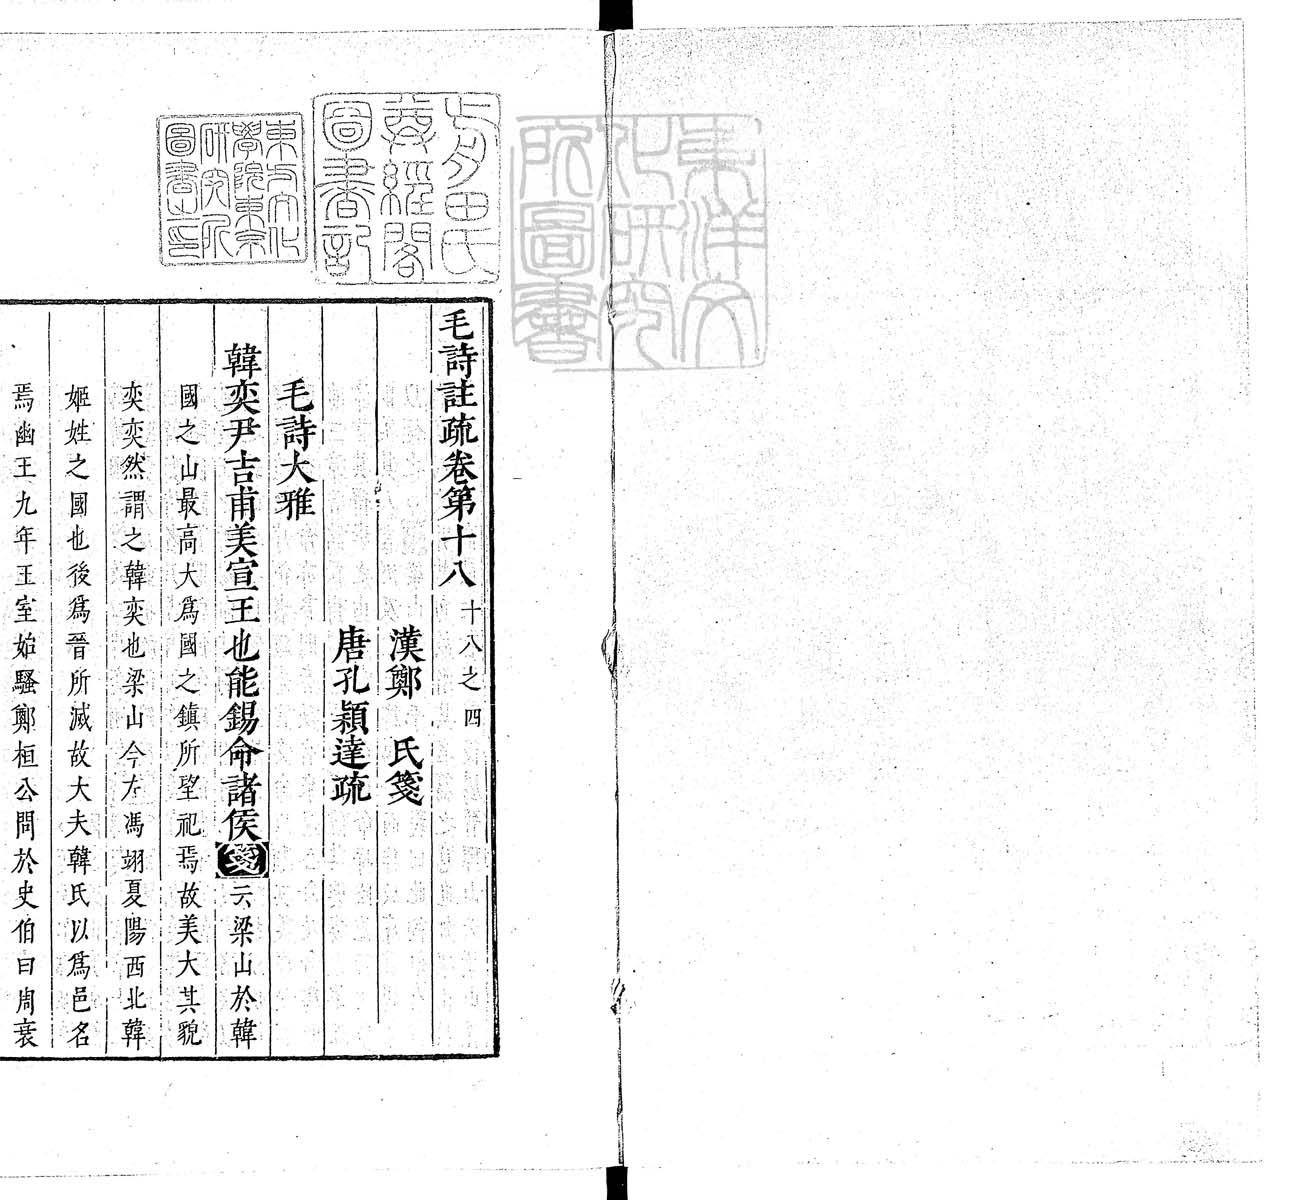 東洋文
化研究
所圖書
前田氏
尊經閣
圖書記
東方文化
學院東京
研究所
圖書之印
毛詩註疏卷第十八 十八之四
漢鄭 氏箋
唐孔穎達疏
毛詩大雅
韓奕尹吉甫美宣王也能錫命諸侯箋云梁山於韓
國之山最高大爲國之鎮所望祀焉故美大其貌
奕奕然謂之韓奕也梁山今左馮翊夏陽西北韓
姬姓之國也後爲晉所滅故大夫韓氏以爲邑名
焉幽王九年王室始騷鄭桓公問於史伯曰周衰